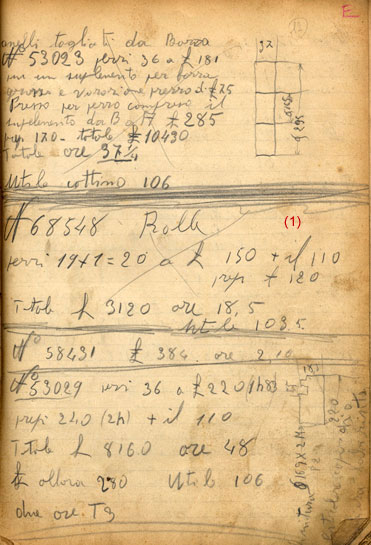 E
anelli tagliati da Barra
N 53023 pezzi 36 a £ 181
più un suplemento per barra
grossa e variazione prezzo di £ 75
Prezzo per pezzo compreso il
suplemento da B a A £ 285
prep 170 - totale £ 10430
Totale ore 37 1/4
Utile cottimo 106
32
295
N 68548 Rolla
(1)
pezzi 19+1=20 a £ 150 + il 110
prep £ 120
Totale £ 3120 ore 18,5
Utile 103,5
N° 58431 £ 384 ore 2,10
N° 53029 pezzi 36 a £ 220
prepi 240 (2h) + il 110
Totale £ 8160 ore 48
£ allora 280 Utile 106
due ore T3
220